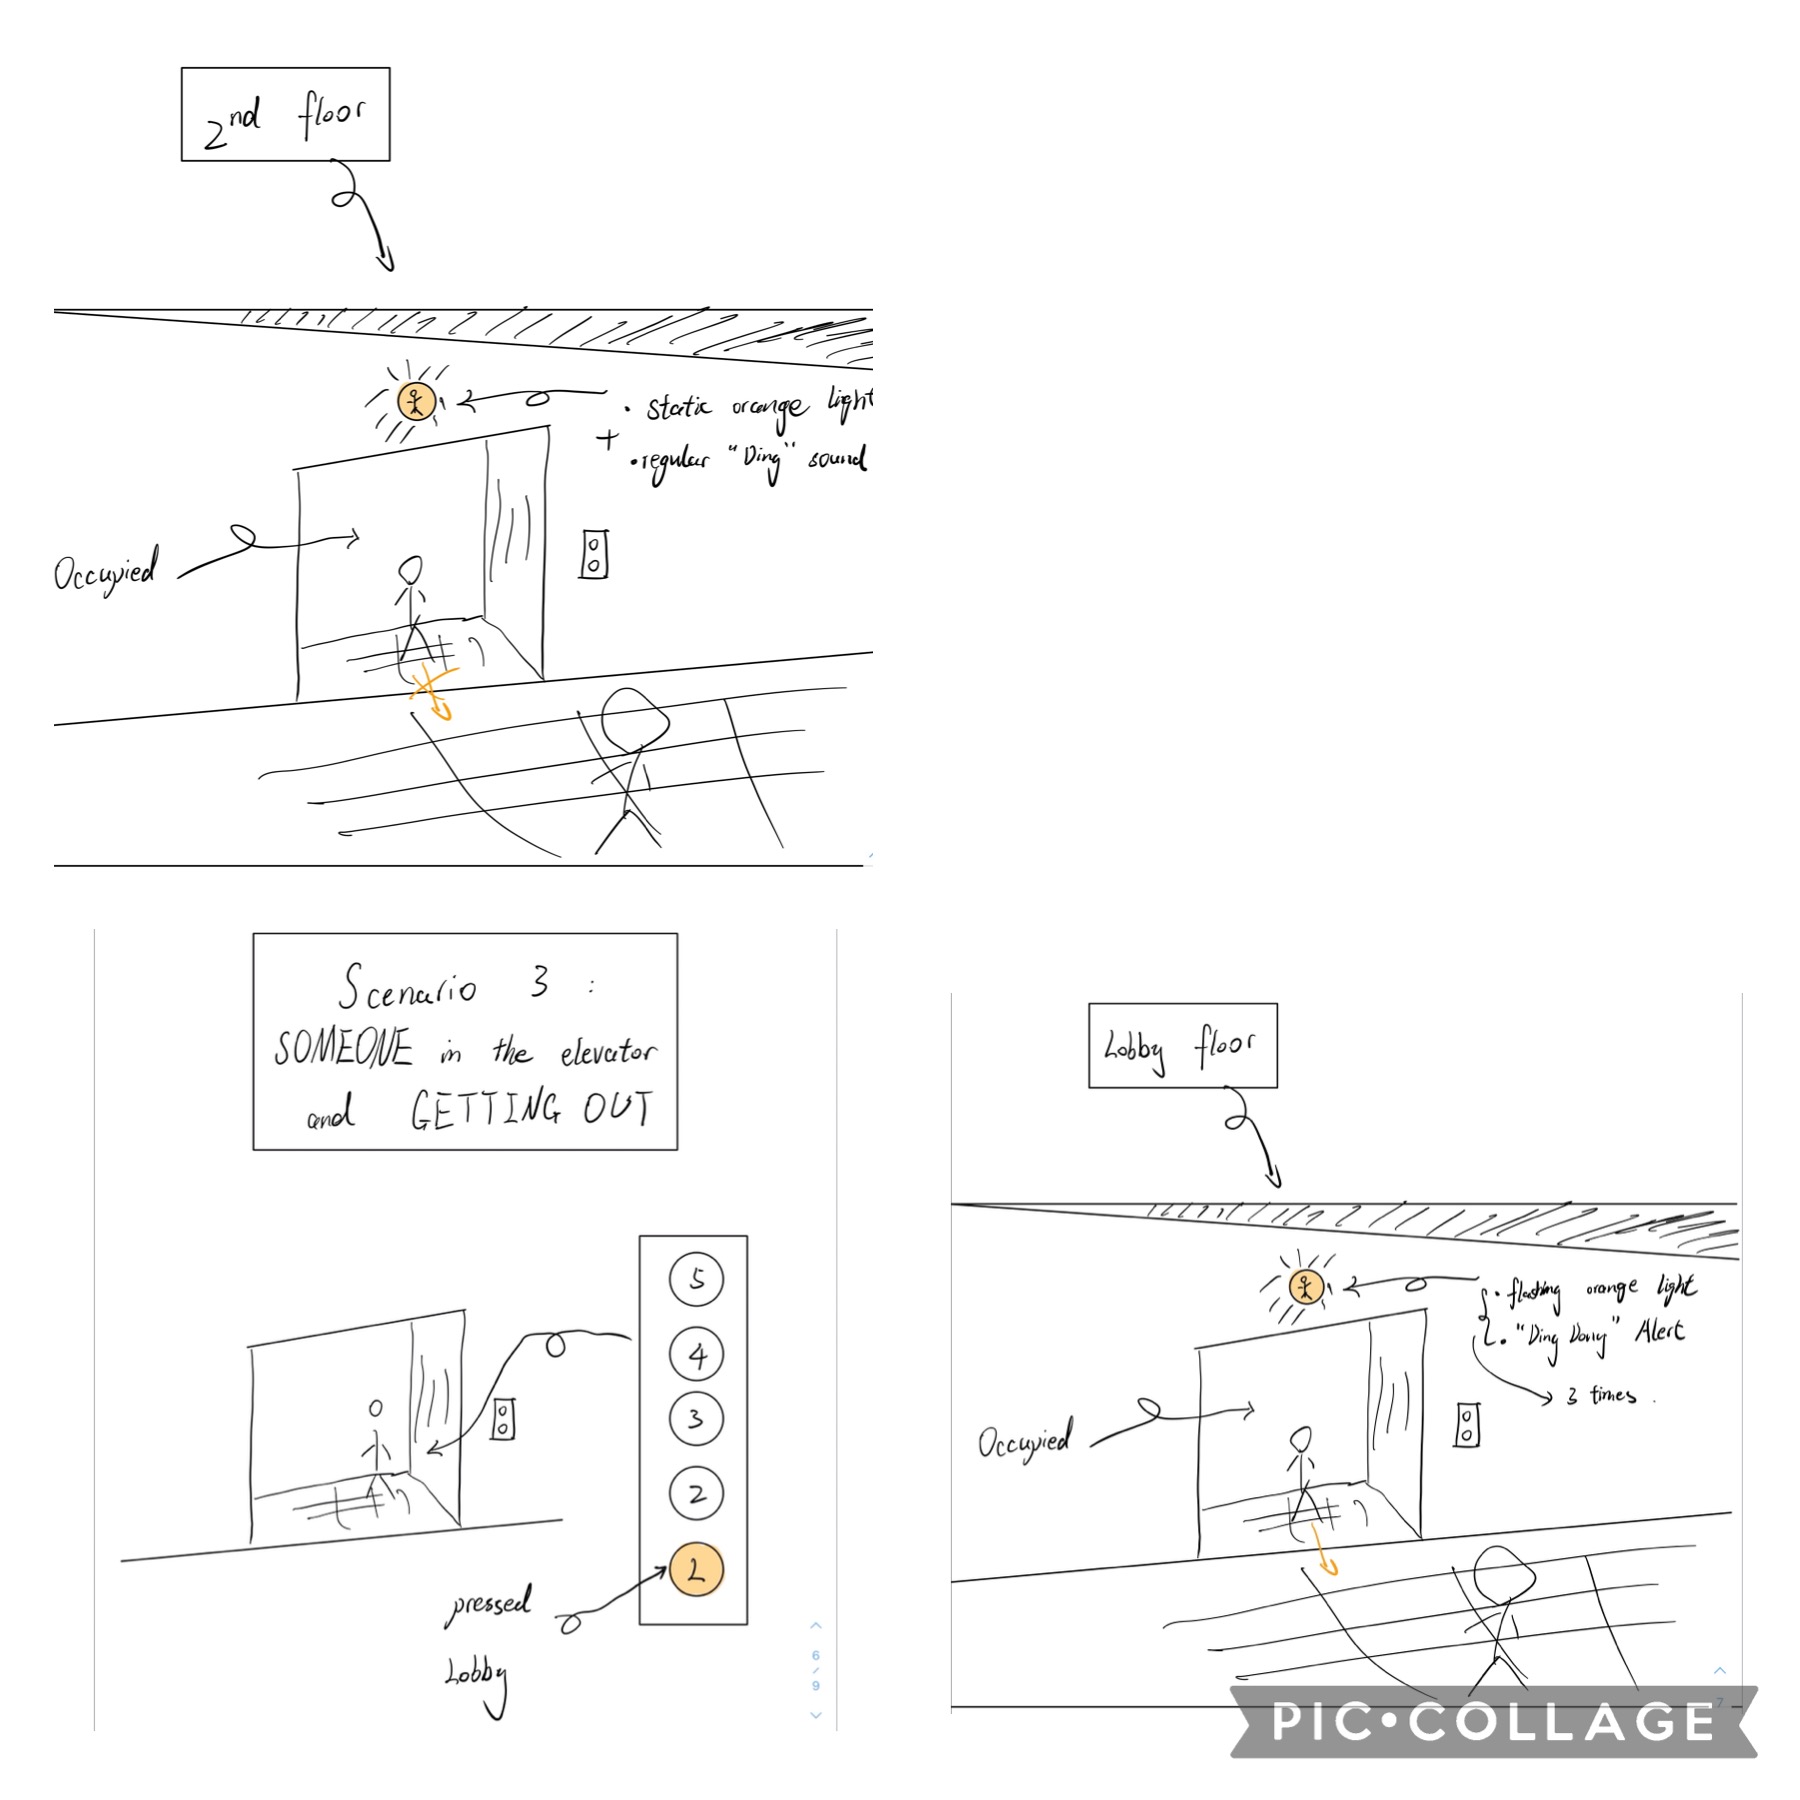 2nd floor
• static orange light
+
• regular "Ding" sound
Occupied
Scenario 3 :
SOMEONE in the elevator
and GETTING OUT
5
4
3
2
L
pressed
Lobby
6
/
9
Lobby floor
• flashing orange light
• "Ding Dong" Alert
3 times.
Occupied
7
PIC•COLLAGE